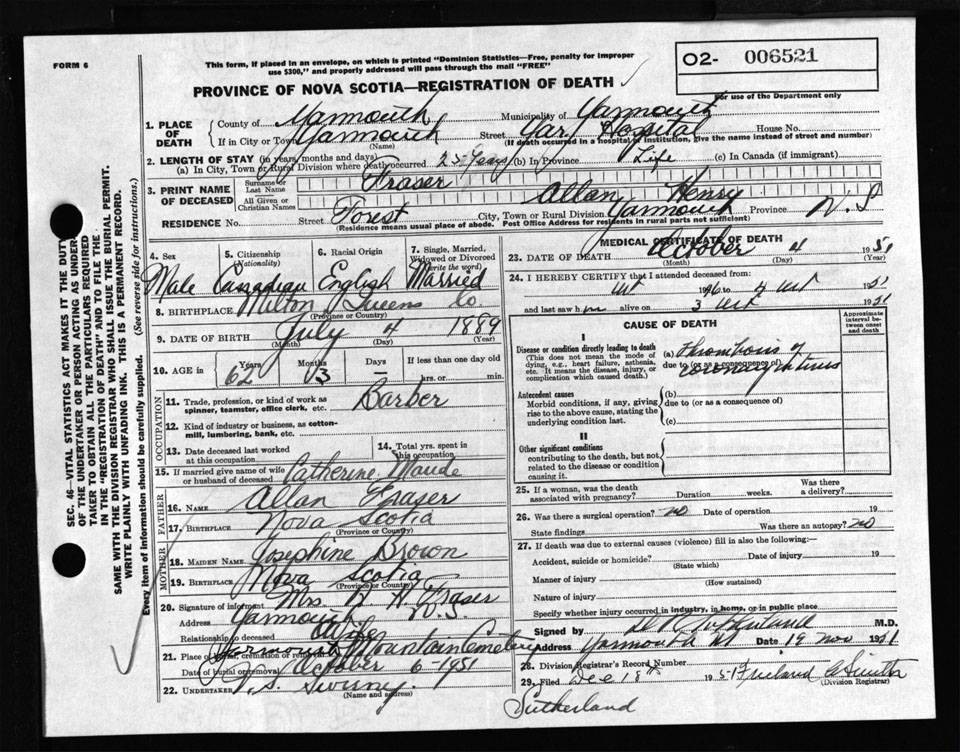 FORM 6
This form, if placed in an envelope, on which is printed "Dominion Statistics—Free, penalty for improper
use $300," and properly addressed will pass through the mail "FREE"
O2- 006521
For use of the Department only
PROVINCE OF NOVA SCOTIA—REGISTRATION OF DEATH
SEC. 46—VITAL STATISTICS ACT MAKES IT THE DUTY
OF THE UNDERTAKER OR PERSON ACTING AS UNDER-
TAKER TO OBTAIN ALL THE PARTICULARS REQUIRED
IN THE "REGISTRATION OF DEATH" AND TO FILE THE
SAME WITH THE DIVISION REGISTRAR WHO SHALL ISSUE THE BURIAL PERMIT.
WRITE PLAINLY WITH UNFADING INK. THIS IS A PERMANENT RECORD.
Every item of information should be carefully supplied. (See reverse side for instructions.)
1. PLACE OF DEATH County of Yarmouth Municipality of Yarmouth
If in City or Town Yarmouth Street Yar. Hospital House No.
(Name) (If death occurred in a hospital or institution, give the name instead of street and number)
2. LENGTH OF STAY (in years, months and days)
(a) In City, Town or Rural Division where death occurred 25 Years (b) In Province Life (c) In Canada (if immigrant)
3. PRINT NAME OF DECEASED Surname or Last Name Fraser
All Given or Christian Names Allan Henry
RESIDENCE No. Street Forest City, Town or Rural Division Yarmouth Province N.S
(Residence means usual place of abode. Post Office Address for residents in rural parts not sufficient)
4. Sex 5. Citizenship (Nationality) 6. Racial Origin 7. Single, Married, Widowed or Divorced (write the word)
Male Canadian English Married
8. BIRTHPLACE Milton Queens Co.
(Province or Country)
9. DATE OF BIRTH July 4 1889
(Month) (Day) (Year)
10. AGE in Years Months Days If less than one day old
62 3 — hrs. or min.
OCCUPATION
11. Trade, profession, or kind of work as
spinner, teamster, office clerk, etc. Barber
12. Kind of industry or business, as cotton-
mill, lumbering, bank, etc.
13. Date deceased last worked
at this occupation
14. Total yrs. spent in
this occupation
15. If married give name of wife
or husband of deceased Catherine Maude
FATHER
16. NAME Allan Fraser
17. BIRTHPLACE Nova Scotia
(Province or Country)
MOTHER
18. MAIDEN NAME Josephine Brown
19. BIRTHPLACE Nova Scotia
(Province or Country)
20. Signature of informant Mrs. A H Fraser
Address Yarmouth N.S.
Relationship to deceased Wife
21. Place of burial, cremation or removal Yarmouth Mountain Cemetery
Date of burial or removal October 6-1951
22. UNDERTAKER V. S. Sweeny
(Name and address)
MEDICAL CERTIFICATE OF DEATH
23. DATE OF DEATH October 4 1951
(Month) (Day) (Year)
24. I HEREBY CERTIFY that I attended deceased from:
Oct 1946 to 4 Oct 1951
and last saw him alive on 3 Oct 1951
CAUSE OF DEATH
Approximate interval between onset and death
I
Disease or condition directly leading to death
(This does not mean the mode of
dying, e.g., heart failure, asthenia,
etc. It means the disease, injury, or
complication which caused death.)
(a) Thrombosis of
due to (or as a consequence of)
Coronary Arteries
Antecedent causes
Morbid conditions, if any, giving
rise to the above cause, stating the
underlying condition last.
(b)
due to (or as a consequence of)
(c)
II
Other significant conditions
contributing to the death, but not
related to the disease or condition
causing it.
25. If a woman, was the death
associated with pregnancy? Duration weeks. Was there
a delivery?
26. Was there a surgical operation? no Date of operation 19
State findings Was there an autopsy? no
27. If death was due to external causes (violence) fill in also the following:—
Accident, suicide or homicide? Date of injury 19
(State which)
Manner of injury
(How sustained)
Nature of injury
Specify whether injury occurred in industry, in home, or in public place
Signed by Sutherland M.D.
Address Yarmouth NS Date 19 Nov 1951
28. Division Registrar's Record Number
29. Filed Dec 18th 1951 Smith
(Division Registrar)
Sutherland